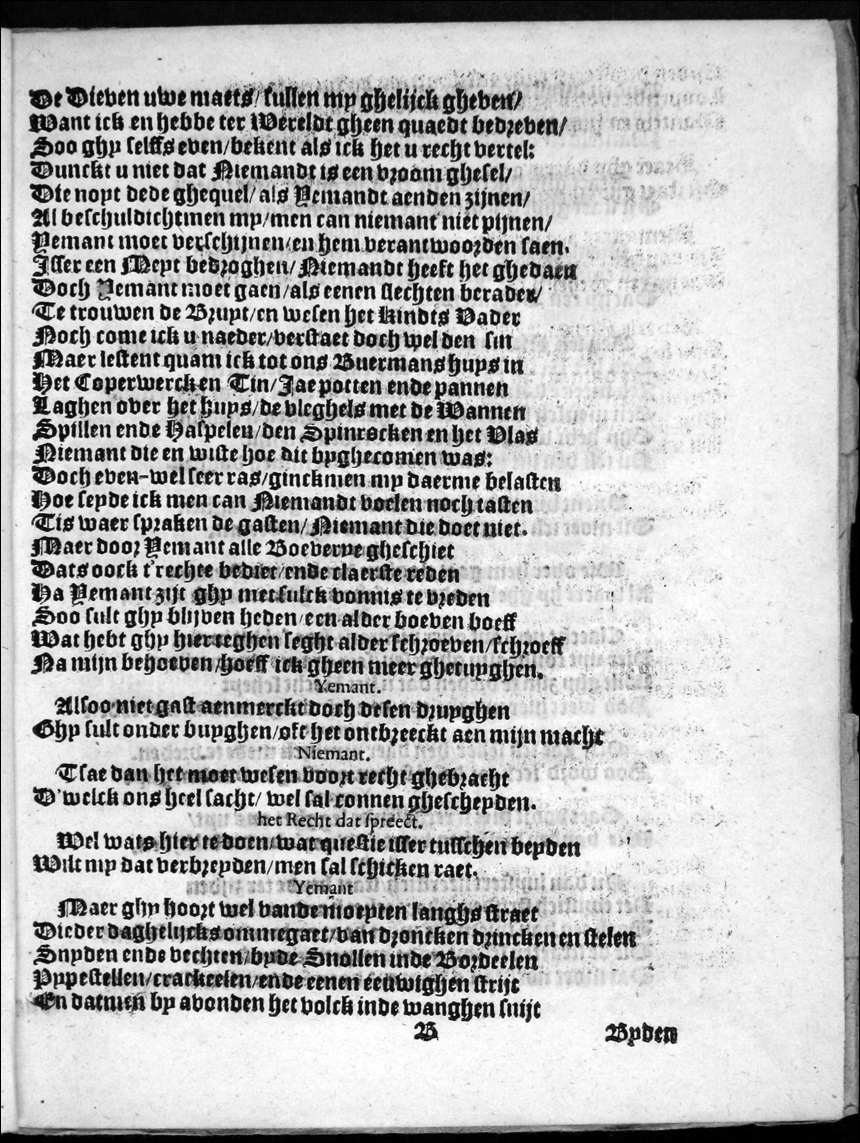 De Dieven uwe maets/ sullen my ghelijck gheven/
Want ick en hebbe ter Wereldt gheen quaedt bedreven/
Soo ghy selffs even/bekent als ick het u recht vertel:
Dunckt u niet dat Niemandt is een vroom ghesel/
Die noyt dede ghequel/als Yemandt aenden zijnen/
Al beschuldichtmen my/men can niemant niet pijnen/
Yemant moet verschijnen/en hem verantwoorden saen.
Isser een Meyt bedroghen/ Niemandt heeft het ghedaen
Doch Yemant moet gaen/als eenen slechten berader/
Te trouwen de Bruyt/en wesen het kindts Vader
Noch come ick u naeder/verstaet doch wel den sin
Maer lestent quam ick tot ons Buermans huys in
Het Coperwerck en Tin/Jae potten ende pannen
Laghen over het huys/de vleghels met de Wannen
Spillen ende Haspelen/den Spinrocken en het Vlas
Niemant die en wiste hoe dit byghecomen was:
Doch even-wel seer ras/ginckmen my daerme belasten
Hoe seyde ick men can Niemandt voelen noch tasten
Tis waer spraken de gasten/ Niemant die doet niet.
Maer door Yemant alle Boeverye gheschiet
Dats oock t'rechte bediet/ende claerste reden
Ha Yemant zijt ghy met sulck vonnis te vreden
Soo sult ghy blijven heden/een alder boeven boeff
Wat hebt ghy hier teghen seght alder schroeven/schroeff
Na mijn behoeven/hoeff ick gheen meer ghetuyghen.
Yemant.
Alsoo niet gast aenmerckt doch desen druyghen
Ghy sult onder buyghen/oft het ontbreeckt aen mijn macht
Niemant.
Tsae dan het moet wesen voort recht ghebracht
D'welck ons heel sacht/ wel sal connen ghescheyden.
het Recht dat spreect.
Wel wats hier te doen/wat questie isser tusschen beyden
Wilt my dat verbreyden/men sal schicken raet.
Yemant
Maer ghy hoort wel vande moeyten langhs straet
Dieder daghelijcks ommegaet/van droncken drincken en stelen
Snyden ende vechten/byde Snollen inde Bordeelen
Pypestellen/crackeelen/ende eenen eeuwighen strijt
En datmen by avonden het volck inde wanghen snijt
B Byden